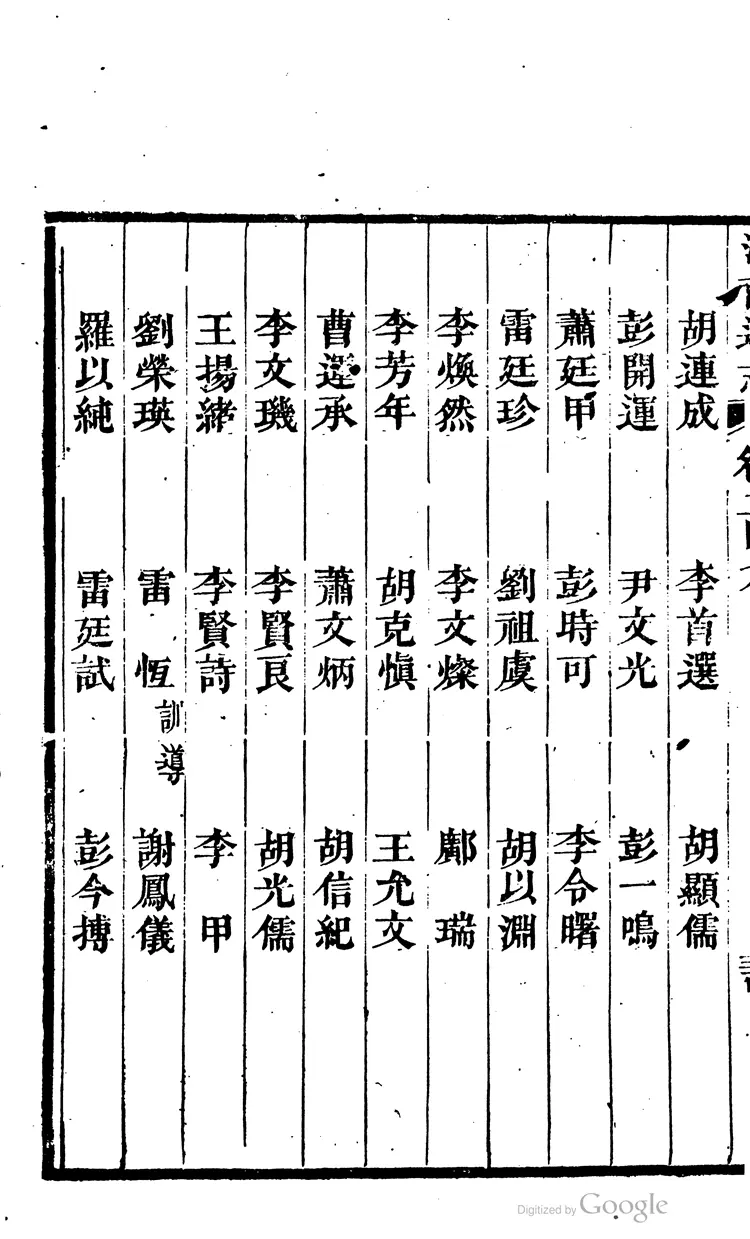 胡連成 李首選 胡顯儒
彭開運 尹文光 彭一鳴
蕭廷甲 彭時可 李令曙
雷廷珍 劉祖虞 胡以淵
李煥然 李文燦 鄺瑞
李芳年 胡克慎 王允文
曹選承 蕭文炳 胡信紀
李文璣 李賢良 胡光儒
王揚緒 李賢詩 李甲
劉榮瑛 雷恆訓導 謝鳳儀
羅以純 雷廷試 彭今摶
Digitized by Google